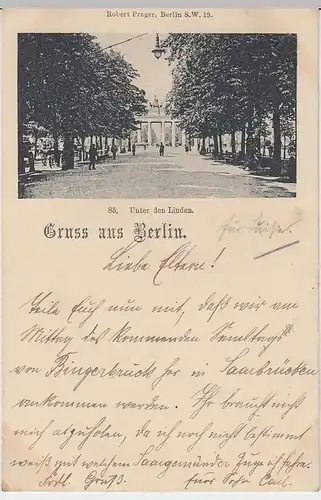 Robert Prager, Berlin S.W. 19.
85. Unter den Linden.
Gruss aus Berlin.
Liebe Eltern!
teile Euch nun mit, daß wir am
Mittag des kommenden Samstags
von Bingerbrück her in Saarbrücken
ankommen werden. Ihr braucht nicht
mich abzuholen, da ich noch nicht bestimmt
weiß mit welchem Saargemünder Zuge ich fahre.
Frdl. Gruß. Euer Sohn Carl.